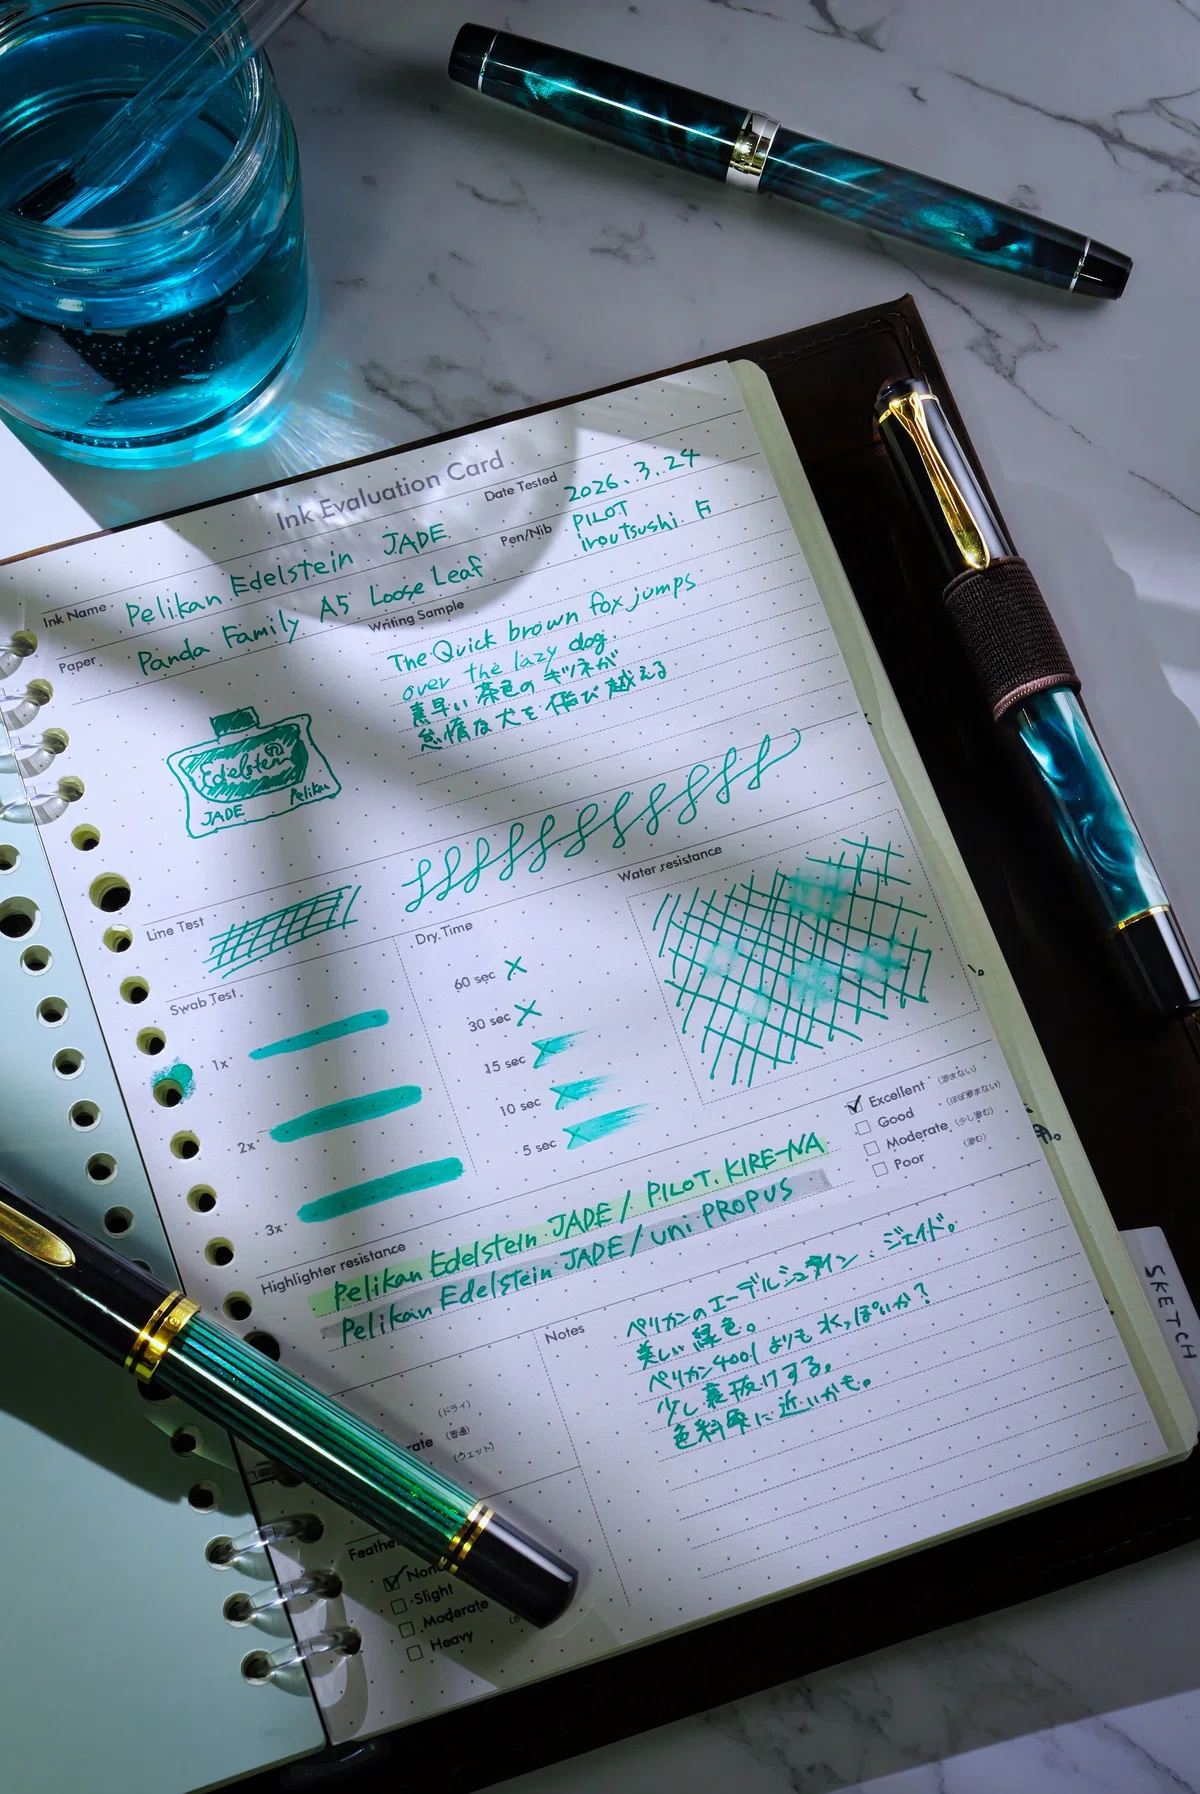 Ink Evaluation Card
Date Tested 2026.3.24
Ink Name Pelikan Edelstein JADE
Pen/Nib PILOT
iroutsushi F
Paper Panda Family A5 Loose Leaf
Writing Sample
The Quick brown fox jumps
over the lazy dog.
素早い茶色のキツネが
怠惰な犬を飛び越える
Edelstein
JADE Pelikan
Line Test
Dry Time
Water resistance
Swab Test
60 sec
30 sec
15 sec
10 sec
5 sec
1x
2x
3x
Excellent (滲まない)
Good (ほぼ滲まない)
Moderate (少し滲む)
Poor (滲む)
Highlighter resistance
Pelikan Edelstein JADE / PILOT. KIRE-NA
Pelikan Edelstein JADE / uni PROPUS
Notes
ペリカンのエーデルシュタイン.ジェイド。
美しい緑色。
ペリカン4001よりも水っぽいか?
少し裏抜けする。
色彩雫に近いかも。
(ドライ)
rate (普通)
(ウェット)
Feathe
Non
Slight
Moderate
Heavy
SKETCH